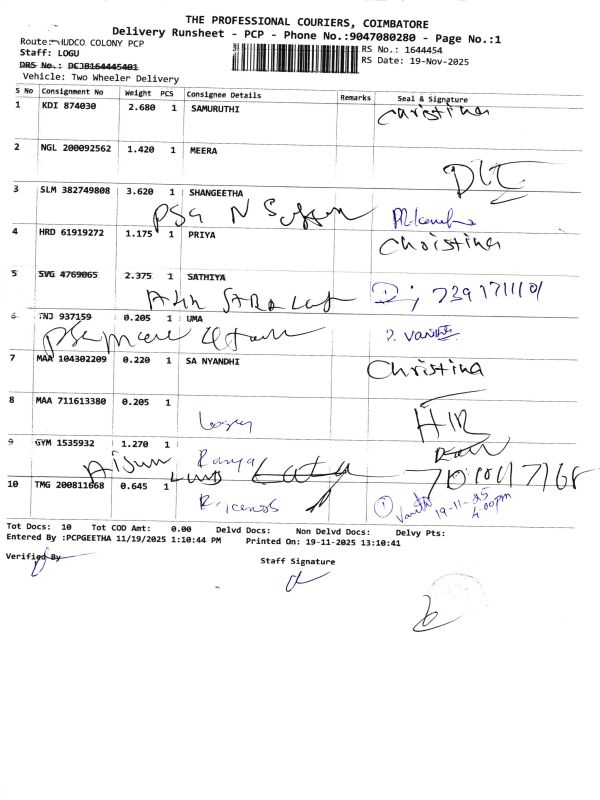 THE PROFESSIONAL COURIERS, COIMBATORE
Delivery Runsheet - PCP - Phone No.:9047080280 - Page No.:1
Route: HUDCO COLONY PCP
RS No.: 1644454
Staff: LOGU
RS Date: 19-Nov-2025
DRS No.: DCJB164445401
Vehicle: Two Wheeler Delivery
S No Consignment No Weight PCS Consignee Details Remarks Seal & Signature
1 KDI 874030 2.680 1 SAMURUTHI Christina
2 NGL 200092562 1.420 1 MEERA
3 SLM 382749808 3.620 1 SHANGEETHA
PSG N
4 HRD 61919272 1.175 1 PRIYA Christina
5 SVG 4769065 2.375 1 SATHIYA
7391711101
6 TNJ 937159 0.205 1 UMA
7 MAA 104302209 0.220 1 SA NYANDHI Christina
8 MAA 711613380 0.205 1
9 GYM 1535932 1.270 1
Ramya
10 TMG 200811668 0.645 1
19-11-25
4:00pm
Tot Docs: 10 Tot COD Amt: 0.00 Delvd Docs: Non Delvd Docs: Delvy Pts:
Entered By :PCPGEETHA 11/19/2025 1:10:44 PM Printed On: 19-11-2025 13:10:41
Verified By
Staff Signature